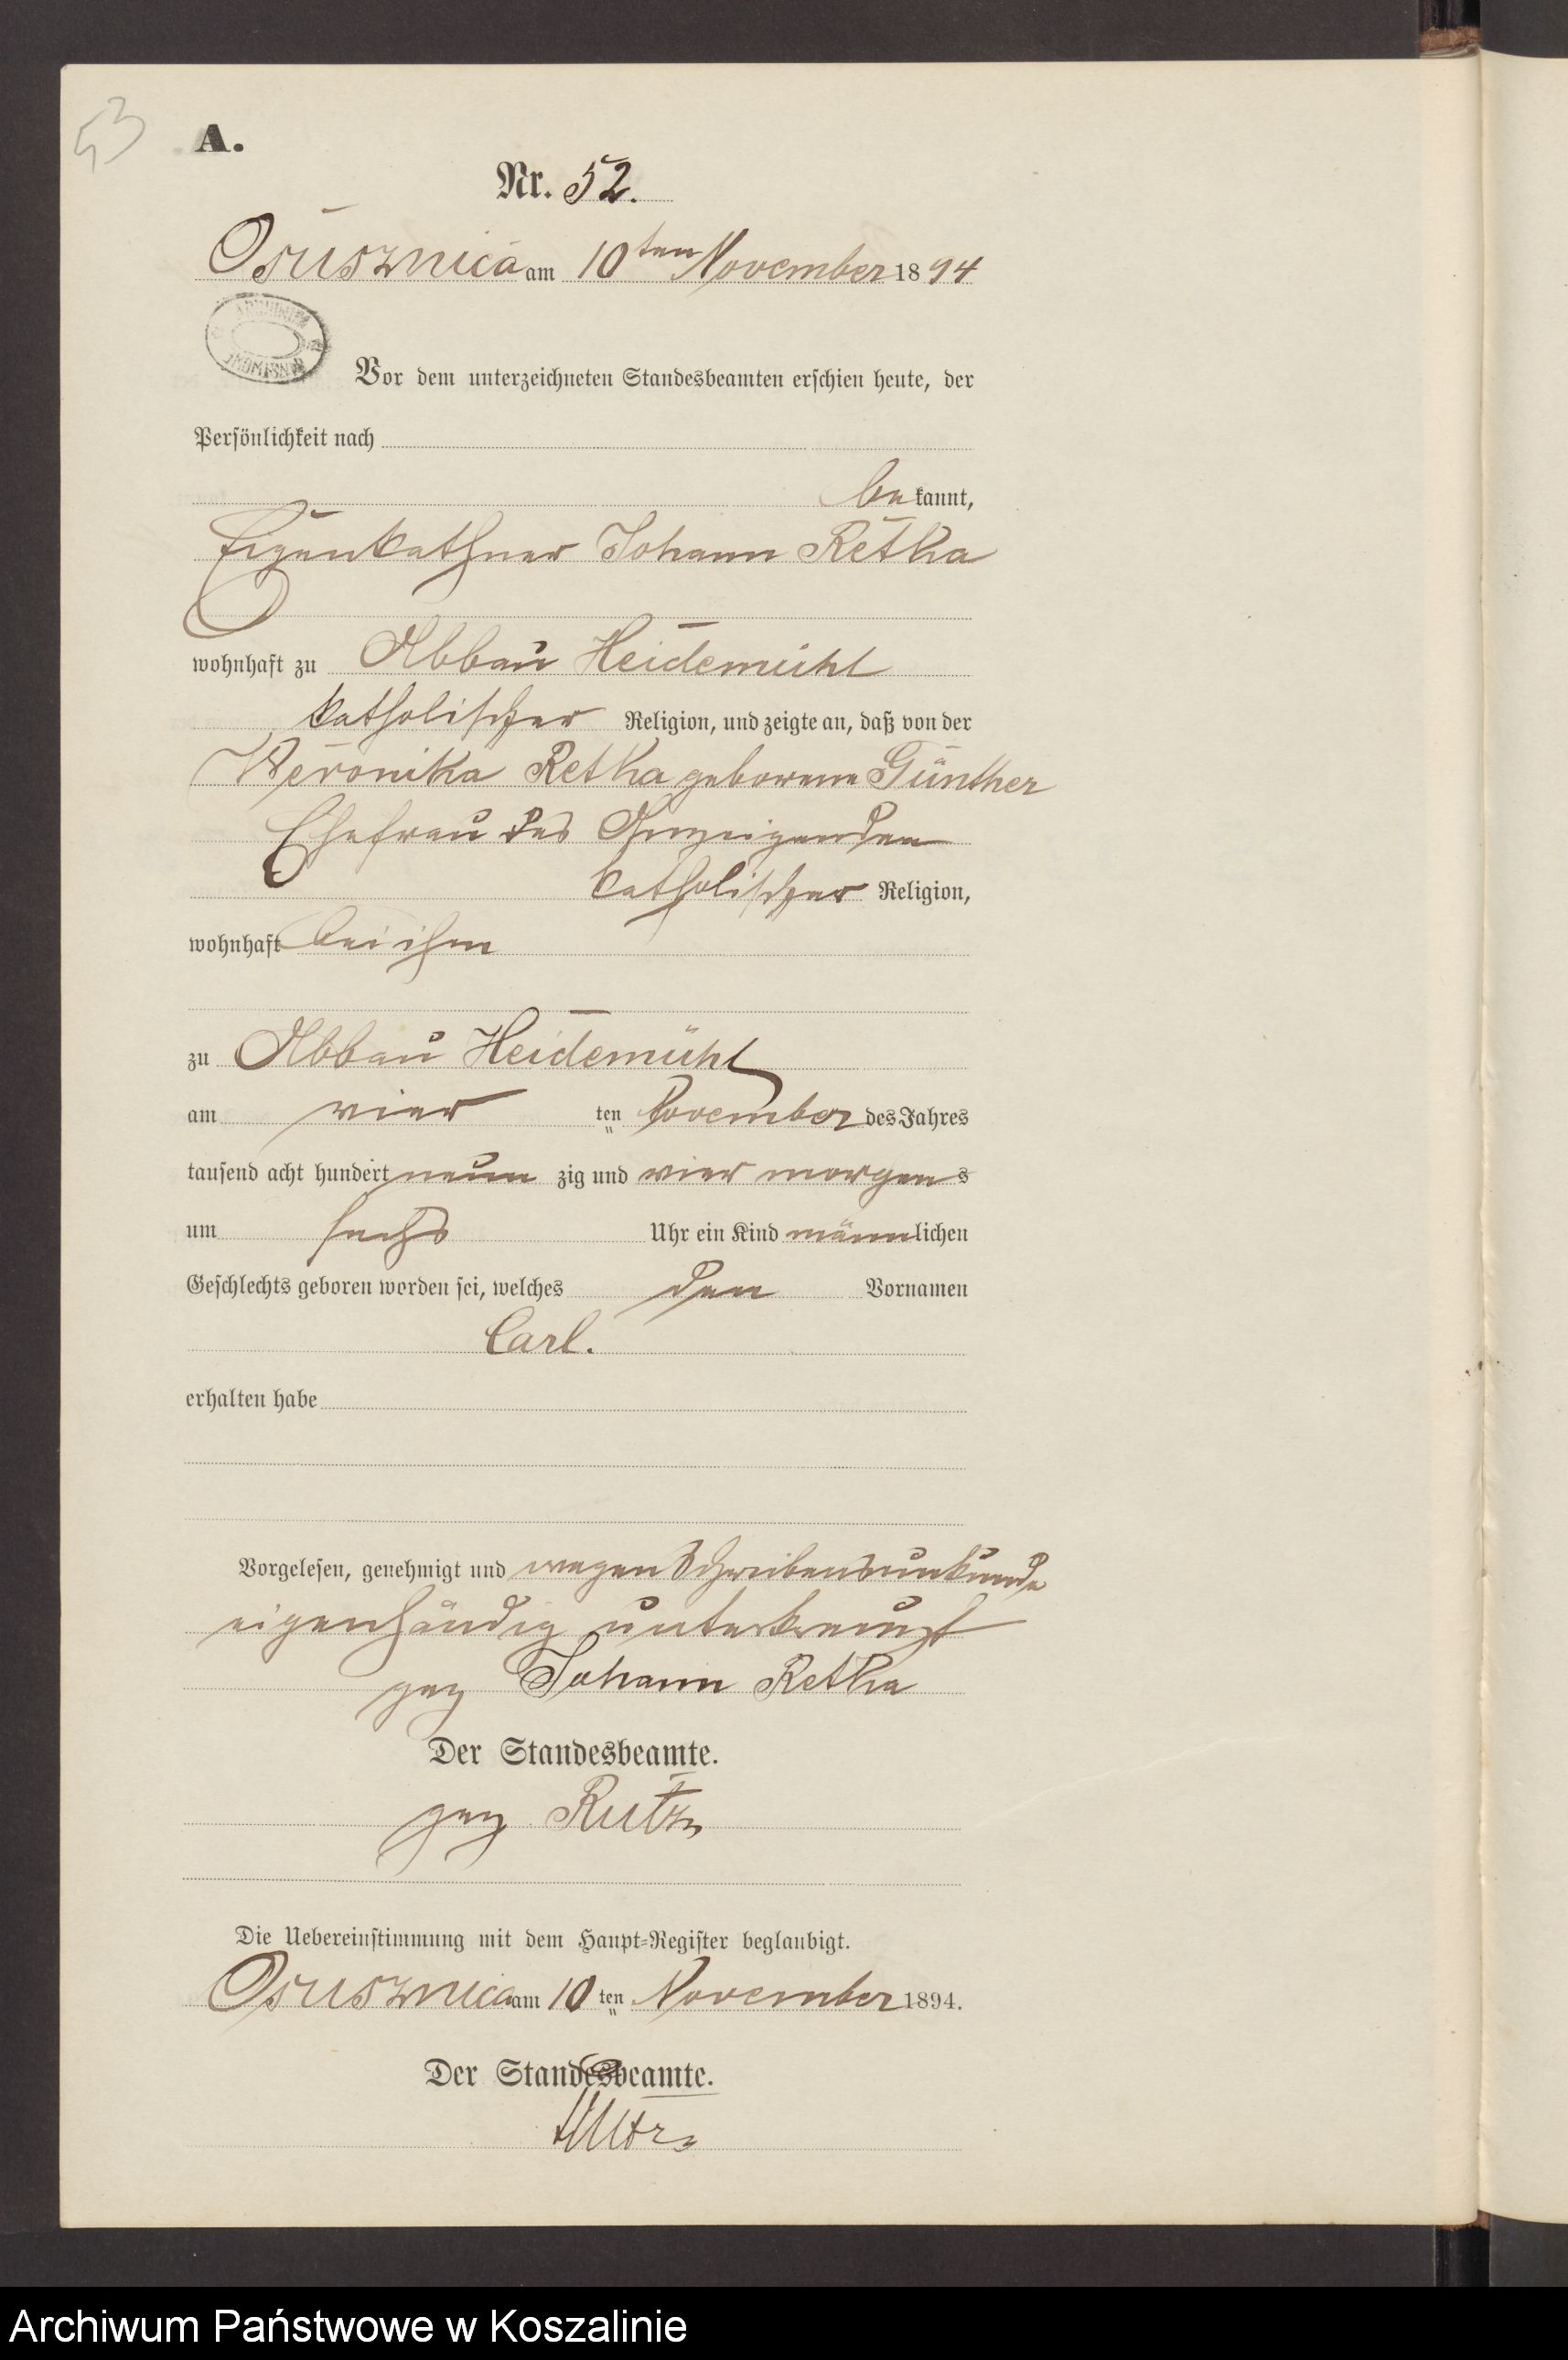 53
A.
Nr. 52.
Osusznica am 10ten November 1894
Vor dem unterzeichneten Standesbeamten erschien heute, der
Persönlichkeit nach
bekannt,
Eigenkathner Johann Retka
wohnhaft zu Abbau Heidemühl
katholischer Religion, und zeigte an, daß von der
Weronika Retka geborene Günther
Ehefrau des Anzeigenden
katholischer Religion,
wohnhaft bei ihm
zu Abbau Heidemühl
am vier ten November des Jahres
tausend acht hundert neun zig und vier morgens
um sechs Uhr ein Kind männlichen
Geschlechts geboren worden sei, welches den Vornamen
Carl.
erhalten habe
Vorgelesen, genehmigt und wegen Schreibensunkunde
eigenhändig unterkreuzt
gez Johann Retka
Der Standesbeamte.
gez Rutz
Die Uebereinstimmung mit dem Haupt-Register beglaubigt.
Osusznica am 10 ten November 1894.
Der Standesbeamte.
Rutz
Archiwum Państwowe w Koszalinie